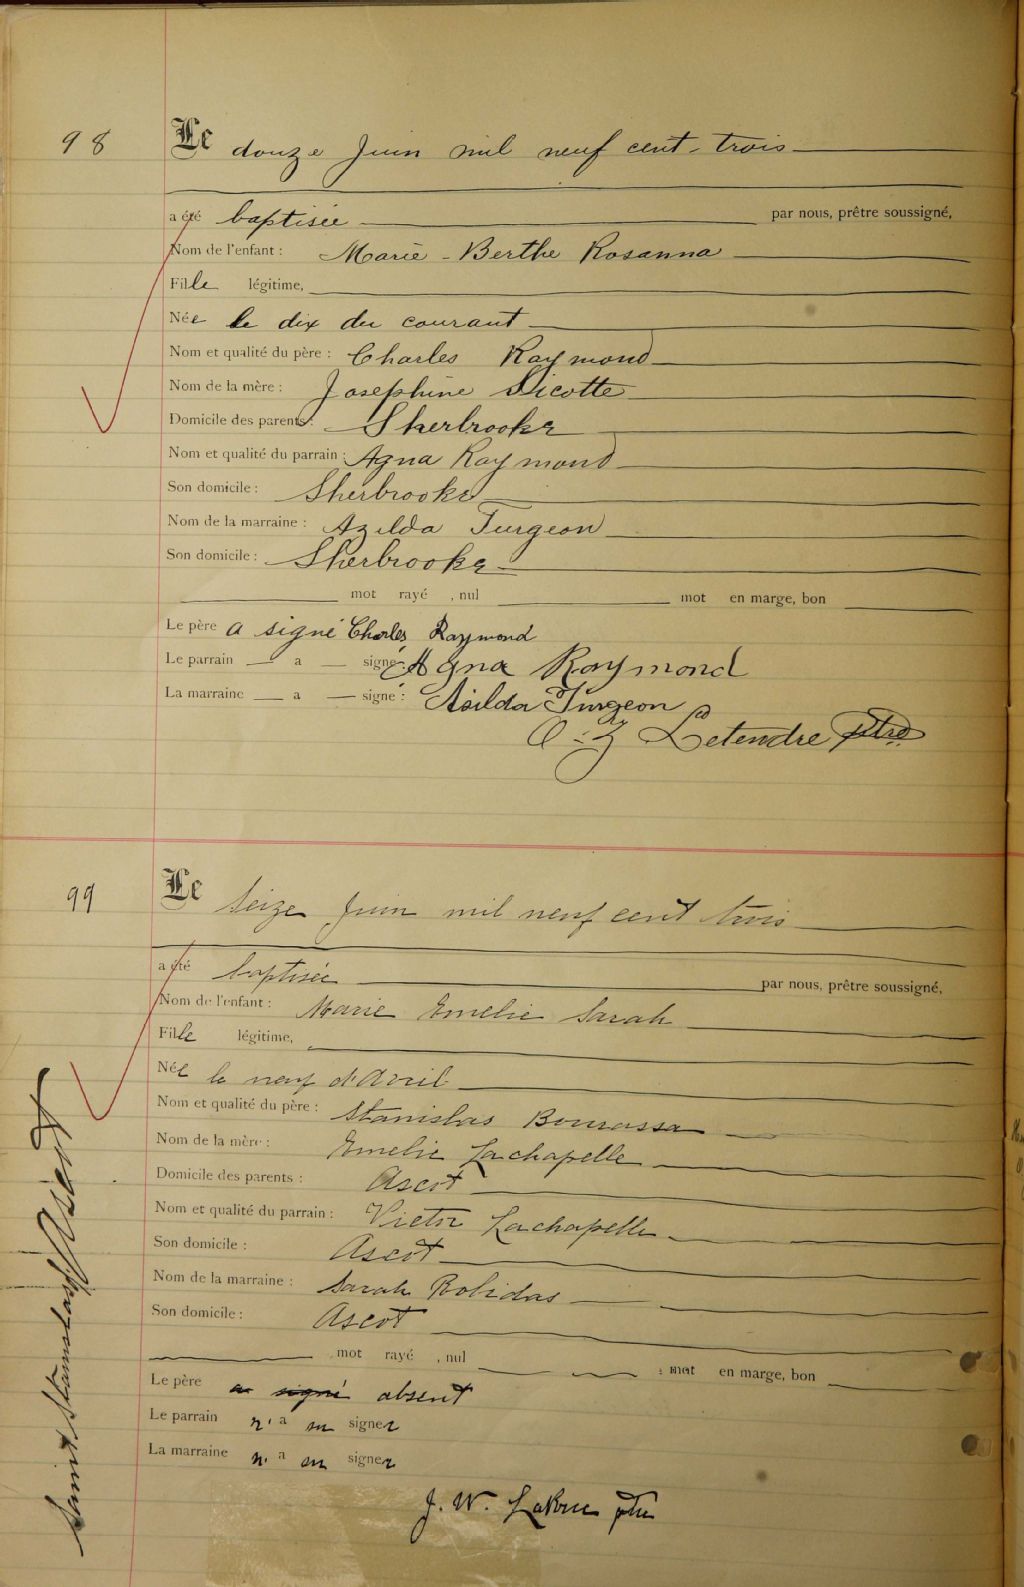 98
Le douze Juin mil neuf cent-trois
a été baptisée par nous, prêtre soussigné,
Nom de l'enfant : Marie-Berthe Rosanna
Fille légitime,
Née le dix du courant
Nom et qualité du père : Charles Raymond
Nom de la mère : Josephine Sicotte
Domicile des parents : Sherbrooke
Nom et qualité du parrain : Agna Raymond
Son domicile : Sherbrooke
Nom de la marraine : Azilda Turgeon
Son domicile : Sherbrooke
mot rayé , nul mot en marge, bon
Le père a signé Charles Raymond
Le parrain a signé : Agna Raymond
La marraine a signé : Asilda Turgeon
O. Z Letendre ptre
99
Le Seize Juin mil neuf cent trois
a été baptisée par nous, prêtre soussigné,
Nom de l'enfant : Marie Emelie Sarah
Fille légitime,
Née le neuf d'Avril
Nom et qualité du père : Stanislas Bourassa
Nom de la mère : Emelie Lachapelle
Domicile des parents : Ascot
Nom et qualité du parrain : Victor Lachapelle
Son domicile : Ascot
Nom de la marraine : Sarah Robidas
Son domicile : Ascot
mot rayé , nul : mot en marge, bon
Le père a signé absent
Le parrain n'a su signer
La marraine n'a su signer
J. W. ptre
Saint Stanislas Ascot